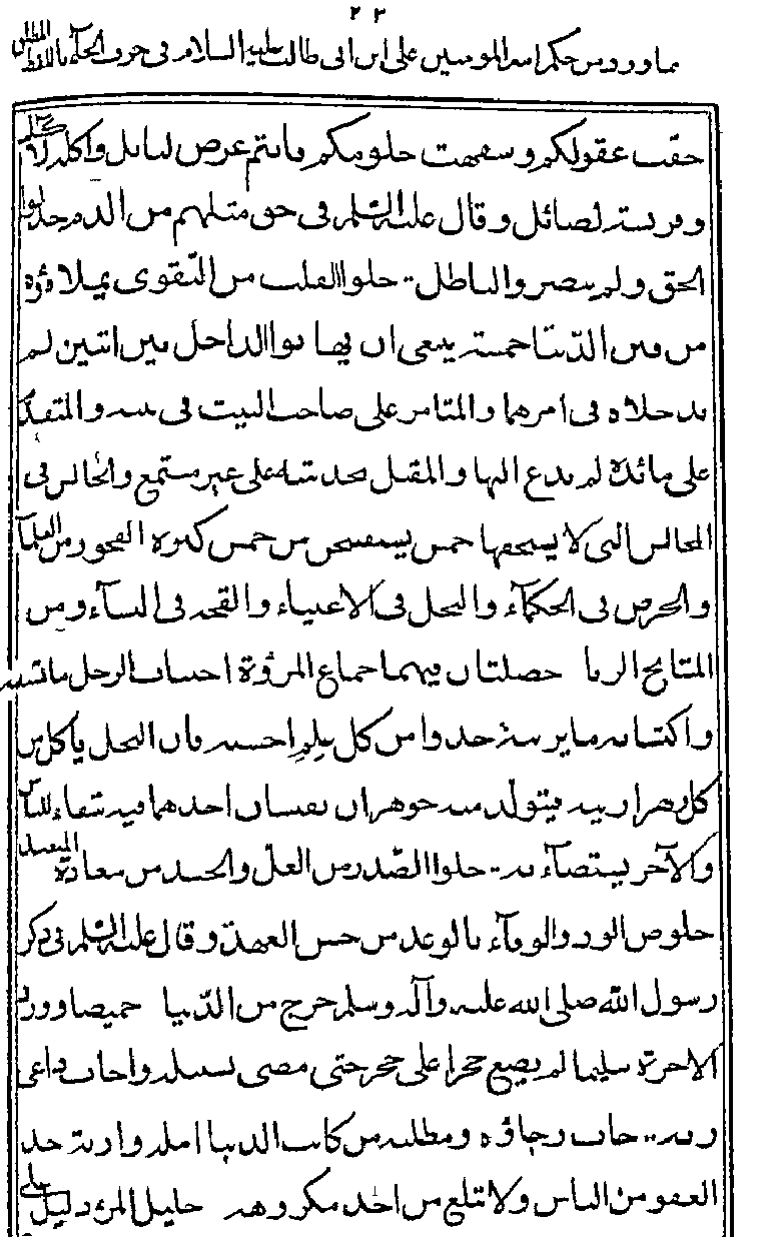 ٢٣
مما ورد من حكم امير المومنين علي ابن ابي طالب عليه السلام في حرف الخاء باللفظ المطلق
خفت عقولكم وسفهت حلومكم فانتم غرض لنابل واكلة لاكل
وفريسة لصائل وقال عليه السلم في حق مثلهم من الذم خذلوا
الحق ولم ينصروا الباطل خلو القلب من التقوى يملاوه
من فتن الدنيا خمسة ينبغي ان يهانوا الداخل بين اثنين لم
يدخلاه في امرهما والمتامر على صاحب البيت في بيته والمتقدم
على مائدة لم يدع اليها والمقبل بحديثه على غير مستمع والجالس في
المجالس التي لا يستحقها خمس يستقبحن من خمس كثرة الفجور من العلمآ
والحرص في الحكمآء والبخل في الاغنياء والقحة في النسآء ومن
المشايخ الزنا خصلتان فيهما جماع المروة اجتناب الرجل ما يشينه
واكتسابه ما يزينه خذوا من كل علم احسنه فان النحل ياكل من
كل زهر ازينه فيتولد منه جوهران نفيسان احدهما فيه شفاء للناس
والآخر يستضآء به خلو الصدر من الغل والحسد من سعادة العبد
خلوص الود والوفآء بالوعد من حسن العهد وقال عليه السلم في ذكر
رسول الله صلى الله عليه وآله وسلم خرج من الدنيا خميصا وورد
الاخرة سليما لم يضع حجرا على حجر حتى مضى لسبيله واجاب داعى
ربه خاب رجاؤه ومطلبه من كانت الدنيا امله واربه خذ
العفو من الناس ولا تبلغ من احد مكروهه خليل المرء دليل على